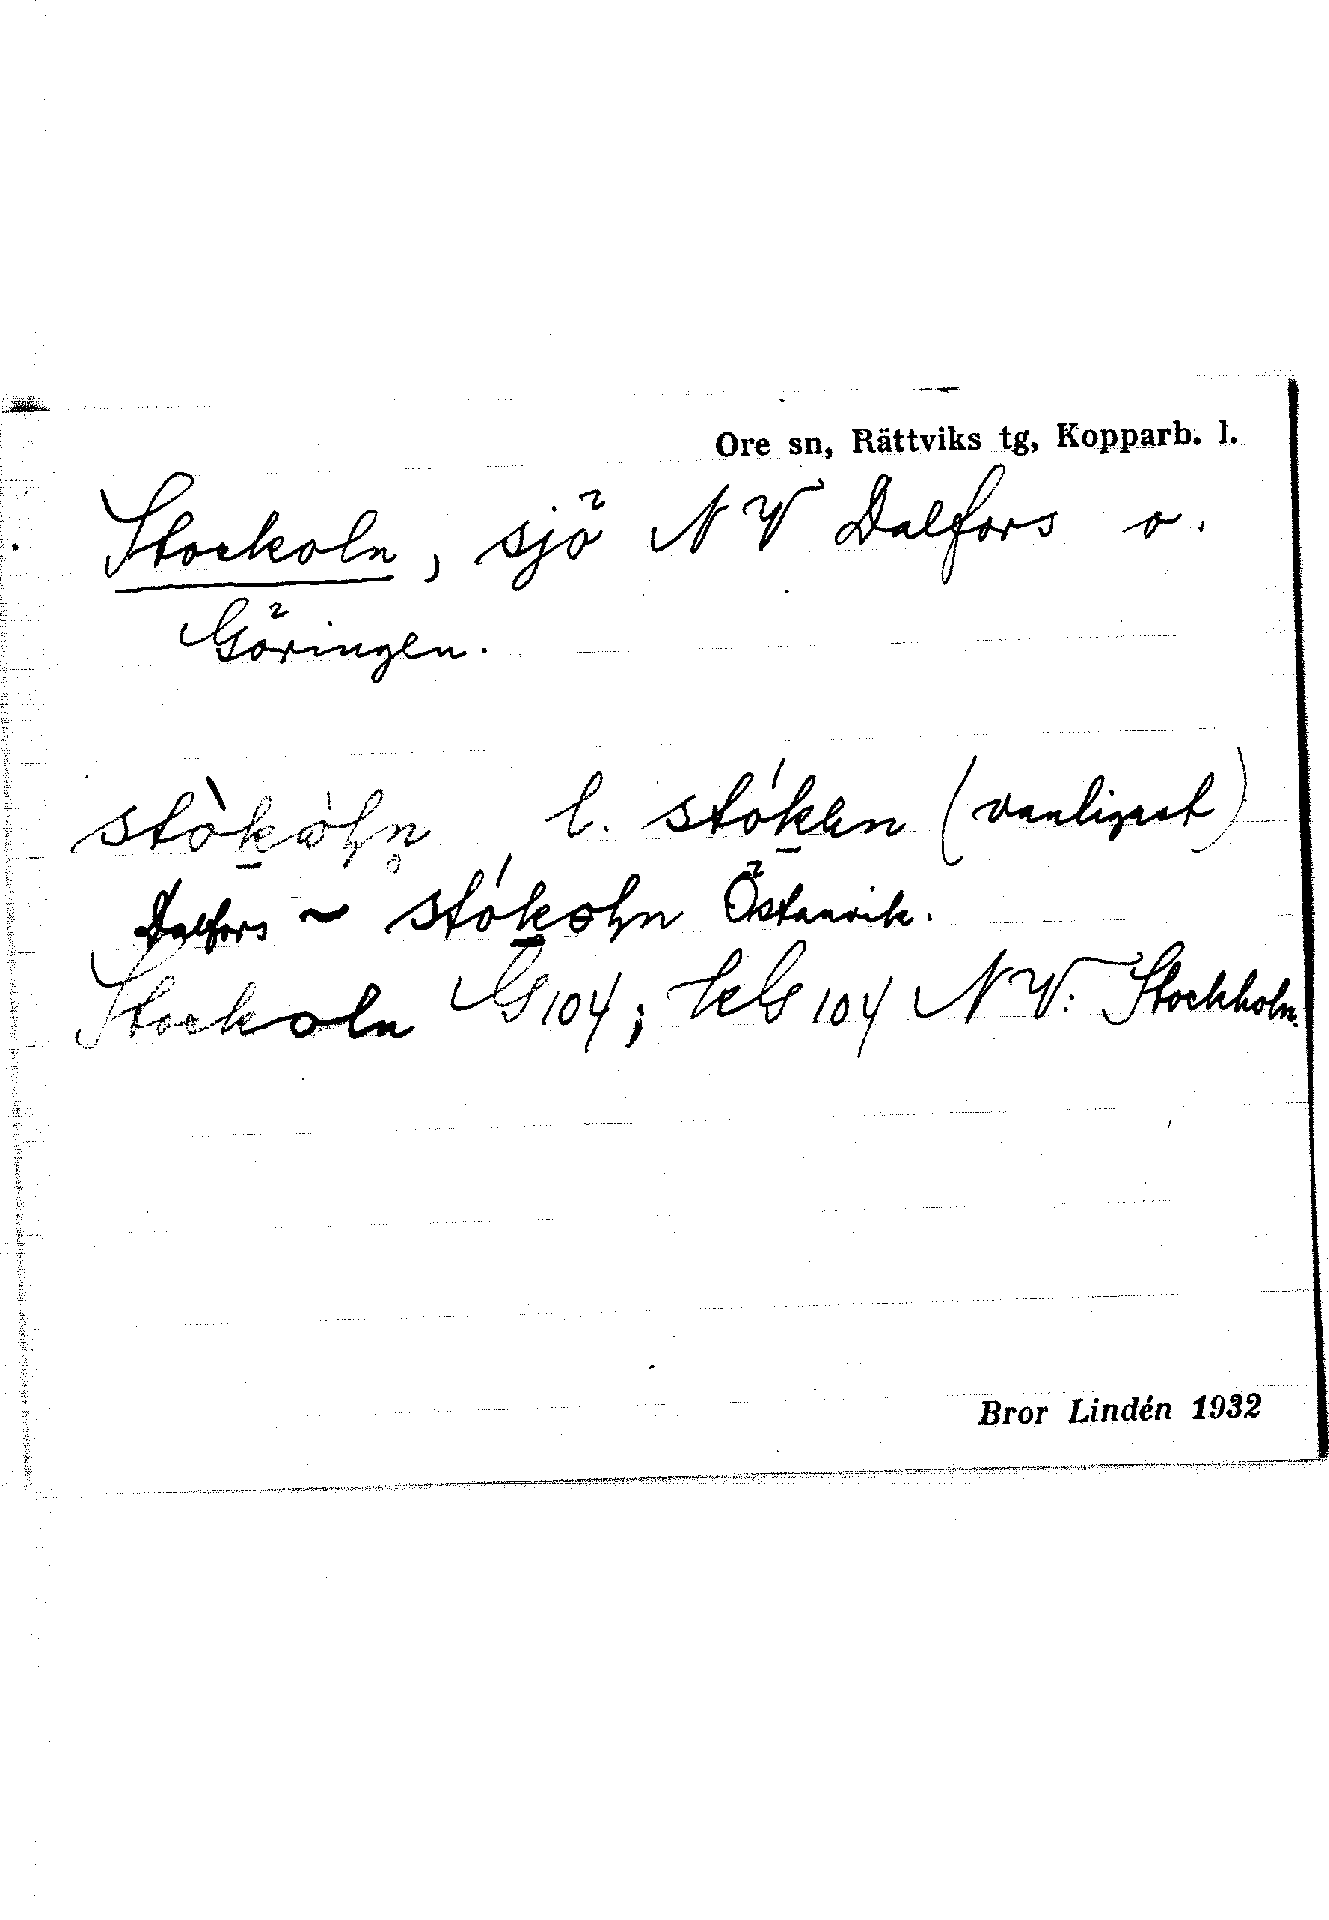 Ore sn, Rättviks tg, Kopparb. l.
Stockoln, sjö NV Dalfors o.
Göringen.
l. (vanligast)
Dalfors ~ Östanvik.
Stockoln G 104; kG 104 NV: Stockholn.
Bror Lindén 1932